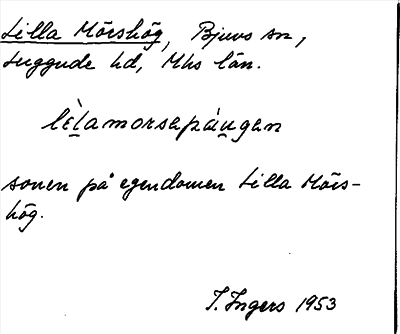 Lilla Mörshög, Bjuvs sn,
Luggude hd, Mhs län.
lɛ̀lamorsapåu̯gen
sonen på egendomen Lilla Mörs-
hög.
I. Ingers 1953